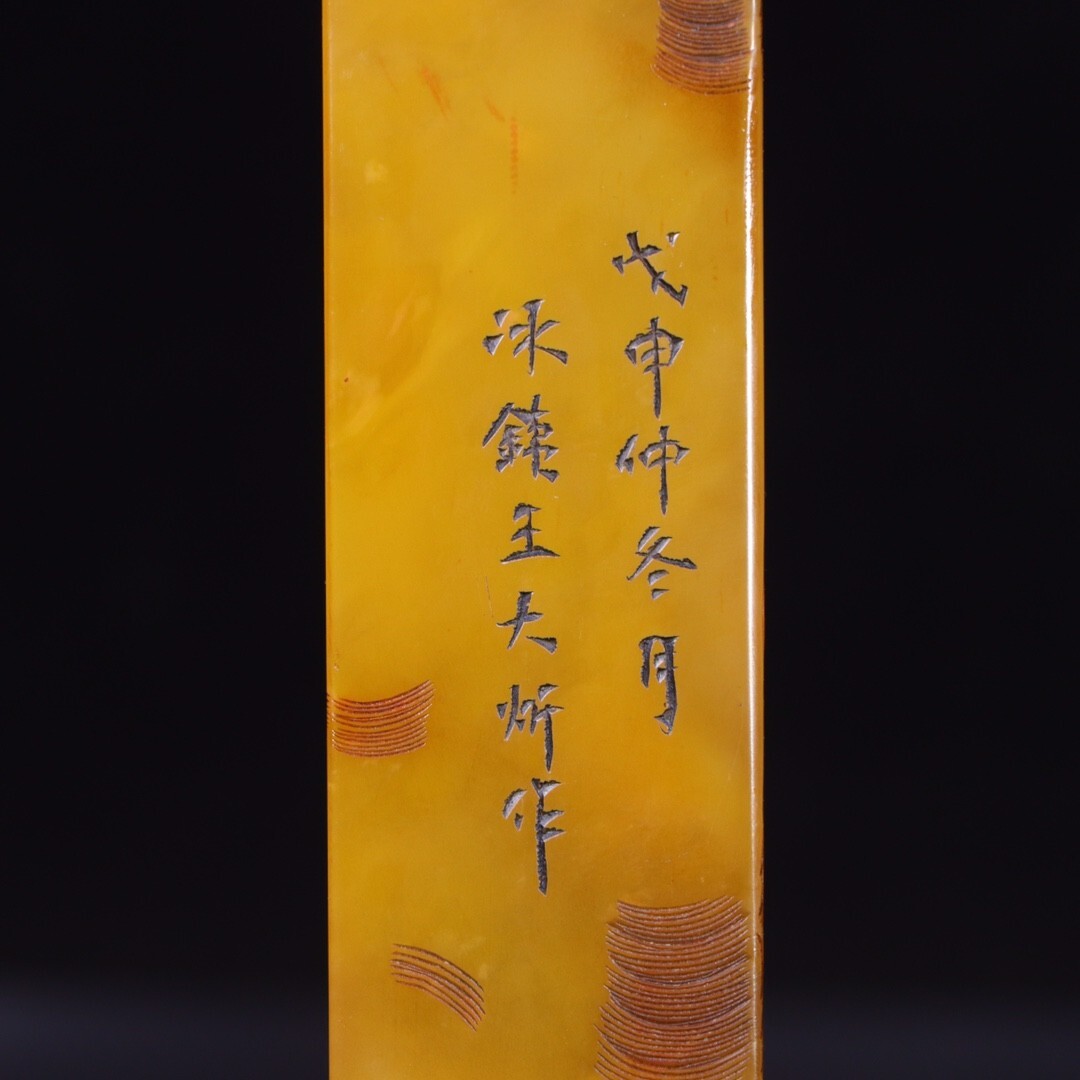 戊申仲冬月
冰鐵王大炘作